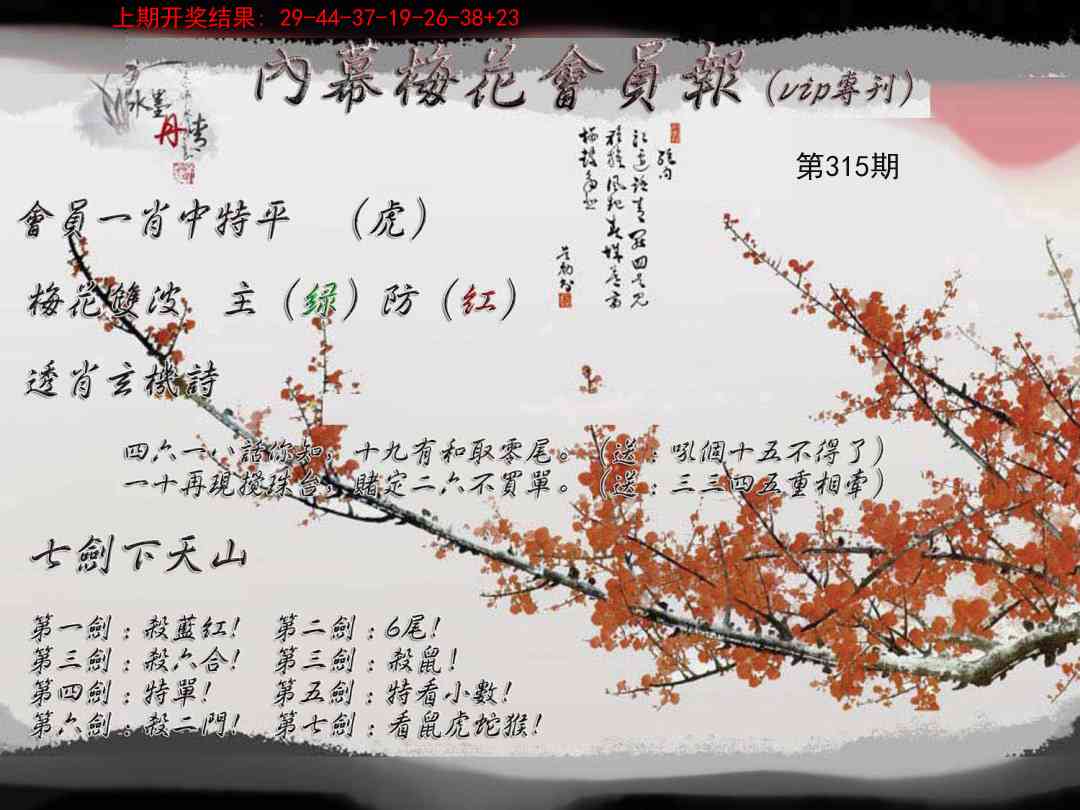 上期开奖结果: 29-44-37-19-26-38+23
內幕梅花會員報(vip專刊)
水墨丹青
第315期
會員一肖中特平 （虎）
梅花雙波 主（绿）防（红）
透肖玄機詩
四六一八話你知，十九有和取零尾。（送：吼個十五不得了）
一十再現攪珠台，賭定二六不買單。（送：三三四五重相牽）
七劍下天山
第一劍：殺藍紅! 第二劍：6尾!
第三劍：殺六合! 第三劍：殺鼠!
第四劍：特單! 第五劍：特看小數!
第六劍：殺二門! 第七劍：看鼠虎蛇猴!